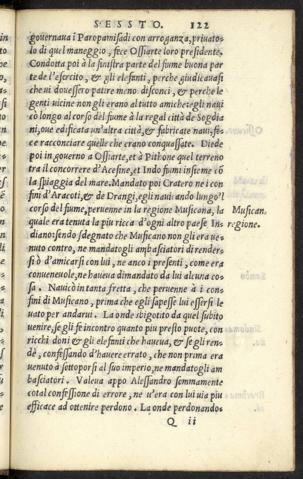 SESSTO. 122
gouernaua i Paropamisadi con arroganza, priuato-
lo di quel maneggio, fece Ossiarte loro presidente.
Condotta poi à la sinistra parte del fiume buona par
te de l'essercito, & gli elefanti, perche giudicauasi
che ui douessero patire meno disconci, & perche le
genti uicine non gli erano al tutto amiche: egli naui
cò longo al corso del fiume à la regal città de Sogdia
ni, oue edificata un'altra città, & fabricate naui, fe-
ce racconciare quelle che erano conquassate. Diede
poi in gouerno a Ossiarte, et à Pithone quel terreno
tra il concorrere d'Acesine, et Indo fiumi insieme cō
la spiaggia del mare. Mandato poi Cratero ne i con
fini d'Aracoti, & de Drangi, egli nauicando lungo'l
corso del fiume, peruenne in la regione Musicana, la
quale era tenuta la piu ricca d'ogni altro paese In
diano: sendo sdegnato che Musicano non gli era ue-
nuto contro, ne mandatogli ambasciatori di render-
si ò d'amicarsi con lui, ne anco i presenti, come era
conueneuole, ne haueua dimandato da lui alcuna co-
sa. Nauicò in tanta fretta, che peruenne à i con-
fini di Musicano, prima che egli sapesse lui essersi le
uato per andarui. La onde sbigotito da quel subito
uenire, se gli fe incontro quanto piu presto puote, con
ricchi doni & gli elefanti che haueua, & se gli ren-
dè, confessando d'hauere errato, che non prima era
uenuto à sottoporsi al suo imperio, ne mandatogli am
basciatori. Valeua appo Alessandro sommamente
cotal confessione di errore, ne u'era con lui uia piu
efficace ad ottenire perdono. La onde perdonando-
Musican.
regione.
Q ii